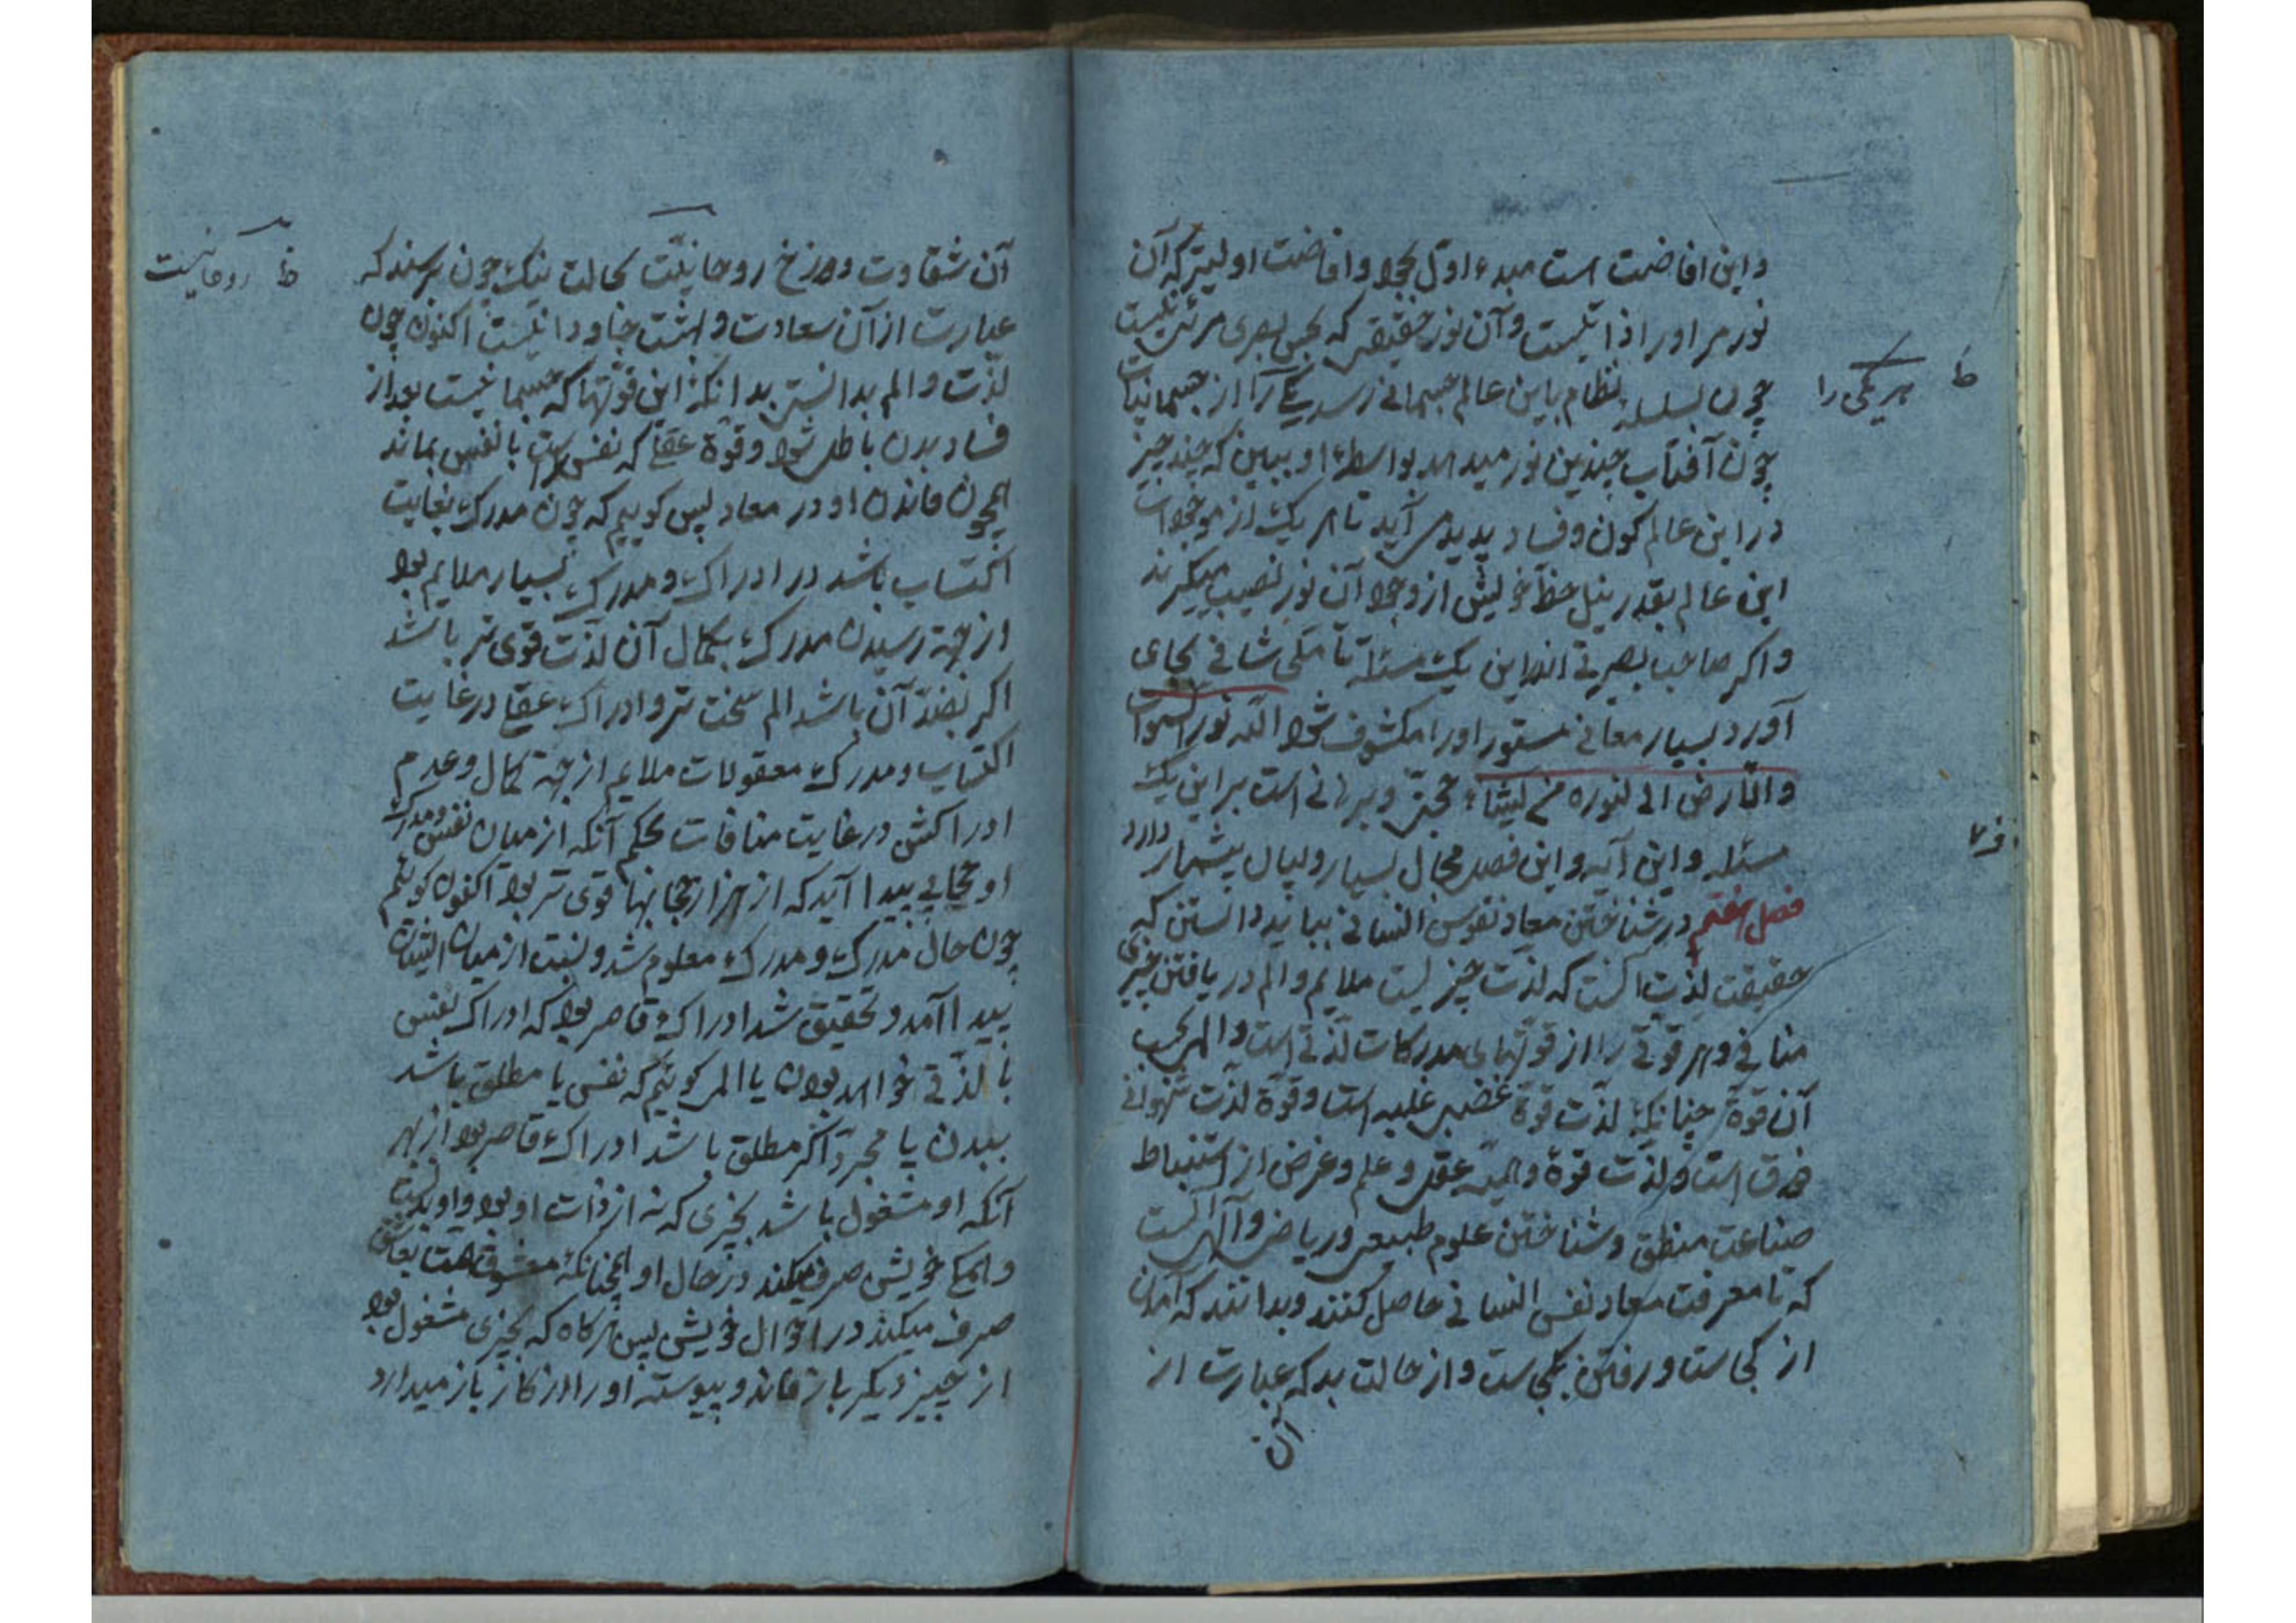 واین افاضت است مبدء اوّل بجود وافاضت اولیتر که آن
نور مر اورا ذاتیست وآن نور حقیقی که بحس بصری مرئی نیست
چون بسلسله نظام باین عالم جسمانی رسد یکی را از جسمانیات
ظ هر یکی را
چون آفتاب چندین نور میدهد بواسطهٔ او ببین که چند چیز
در این عالم کون وفساد پدید می آید تا هر یک از موجودات
این عالم بقدر نیل حظّ خویش از وجود آن نور نصیب میگیرند
واکر صاحب بصیرتی اندر این یک مسئله تأملی شافی بجای
آورد بسیار معانی مستور اورا مکشوف شود اللّه نور السموات
والارض الی لنوره من یشاء حجّتی وبرهانی است بر این یک
مسئله واین آیه واین فصل مجال بسیار وبیان بیشمار دارد
ف ۷
فصل هفتم در شناختن معاد نفوس انسانی بباید دانستن که
حقیقت لذت آنست که لذت چیزیست ملایم والم دریافتن چیزی
منافی وهر قوتی را از قوتهای مدرکات لذتی است والمی بحسب
آن قوة چنانکه لذت قوة غضبی غلبه است وقوة لذت شهوانی
ذوق است ولذت قوة واهمه عقل وعلم وغرض از استنباط
صناعت منطق وشناختن علوم طبیعی وریاضی وآلهی آنست
که تا معرفت معاد نفس انسانی حاصل کنند وبدانند که آمدن
از کجاست ورفتن بکجاست واز حالت بد که عبارت از
آن
آن شقاوت ودوزخ روحانیّت بحالت نیک چون برسند که
ظ روحانیست
عبارت از آن سعادت وبهشت جاودانیست اکنون چون
لذّت والم بدانستی بدانکه این قوتها که جسمانیست بعد از
فساد بدن باطل شود وقوة عقلی که نفس راست با نفس بماند
همچون ماندن او در معاد پس کوییم که چون مدرک بغایت
اکتساب باشد در ادراک ومدرک بسیار ملایم بود
از جهة رسیدن مدرک بکمال آن لذت قوی تر باشد
اکر بضدّ آن باشد الم سخت تر وادراک عقلی در غایت
اکتساب ومدرک معقولات ملایم از جهة کمال وعدم
ادراکش در غایت منافات بحکم آنکه از میان نفس ومدرک
او حجابی پیدا آید که از هزار حجابها قوی تر بود اکنون کوییم
چون حال مدرک ومدرک معلوم شد ونسبت از میان ایشان
پیدا آمد وتحقیق شد ادراک قاصر بود که ادراک نفس
با لذتی خواهد بودن یا المی کوییم که نفس یا مطلق باشد
ببدن یا مجرد اکر مطلق باشد ادراک قاصر بود از بهر
آنکه او مشغول باشد بچیزی که نه از ذات او بود واو
وهمکی خویش صرف میکند در حال او همچنانکه معشوق همت بعاشق
صرف میکند در احوال خویش پس هرکاه که بچیزی مشغول بود
از چیز دیکر باز ماند وپیوسته اورا از کار باز میدارد